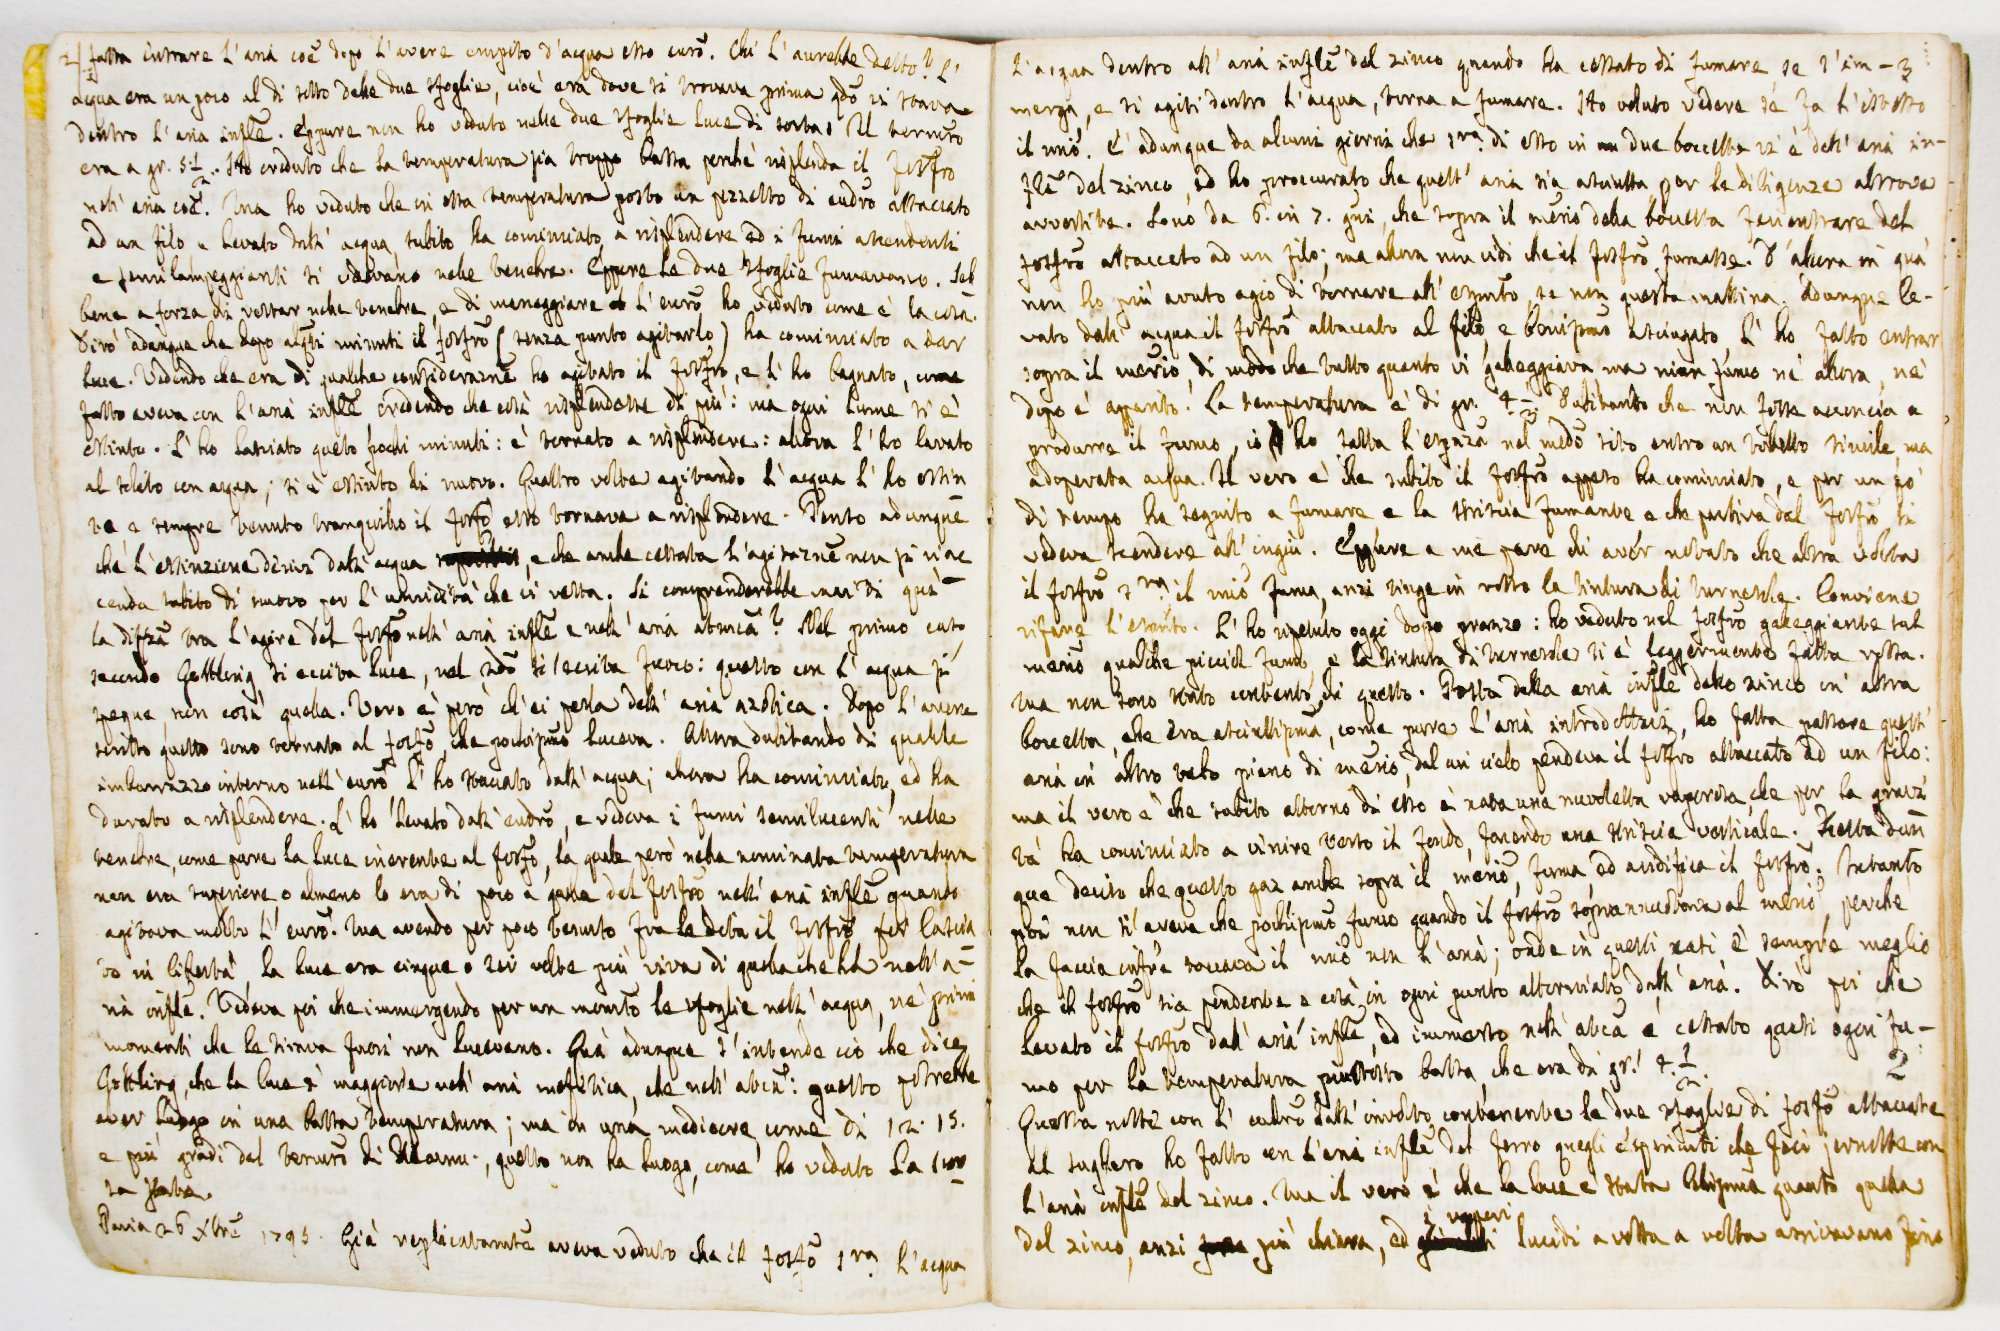 2 fatta entrare l'aria coe dopo l'avere empito d'acqua esso euro. Chi l'avrebbe detto? L'
acqua era un poco al di sotto delle due sfoglie, cioè era dove si trovava prima qdo vi stava
dentro l'aria infle. Eppure non ho veduto nelle due sfoglie luce di sorta. Il termro
era a gr. 5 1/2. Ho creduto che la temperatura sia troppo bassa perchè risplenda il fosfro
nell'aria coe. Ma ho veduto che in essa temperatura posto un pezzetto di attaccato
ad un filo e levato dall'acqua subito ha cominciato a risplendere ed i fumi ascendenti
e semilampeggianti si vedevano nelle tenebre. Eppure le due sfoglie fumavano. Seb
bene a forza di restar nelle tenebre e di maneggiare l'euro ho veduto come è la cosa.
Dirò adunque che dopo alqti minuti il fosfro (senza punto agitarlo) ha cominciato a dar
luce. Vedendo che era di qualche considerazne ho agitato il fosfro, e l'ho bagnato, come
fatto aveva con l'aria infle credendo che così risplendesse di più: ma ogni lume si è
estinto. L'ho lasciato queto pochi minuti: è tornato a risplendere: allora l'ho lavato
al solito con acqua; si è estinto di nuovo. Quattro volte agitando l'acqua l'ho estin
to e sempre tenuto tranquillo il fosfo esso tornava a risplendere. Penso adunque
che l'estinzione derivi dall'acqua, e che anche cessata l'agitazne non si riac
cenda subito di nuovo per l'umidità che vi resta. Si comprenderebbe mai di quà
la diffza tra l'agire del fosfo nell'aria infle e nell'aria atmca? Nel primo caso
secondo Gottling si eccita luce, nel 2do si eccita fuoco: questo con l'acqua si
spegne, non così quella. Vero è però ch'ei parla dell'aria azotica. Dopo l'avere
scritto questo sono tornato al fosfo, che pochissmo luceva. Allora dubitando di qualche
imbarazzo interno nell'euro l'ho staccato dall'acqua; allora ha cominciato, ed ha
durato a risplendere. L'ho levato dall', e vedeva i fumi semilucenti nelle
tenebre, come pure la luce inerente al fosfo, la quale però nella nominata temperatura
non era superiore o almeno lo era di poco a quella del fosfro nell'aria infle quando
agitava molto l'euro. Ma avendo per poco tenuto fra le dita il fosfro per lascia
to in libertà la luce era cinque o sei volte più viva di quella che ha nell'a-
ria infle. Vedeva poi che immergendo per un momto le sfoglie nell'acqua, ne' primi
momenti che le tirava fuori non lucevano. Quà adunque s'intende ciò che dice
Gottling, che la luce è maggiore nell'aria mofetica, che nell'atmca: questo potrebbe
aver luogo in una bassa temperatura; ma in una mediocre, come di 12. 15.
e più gradi del termro di Reaumr., questo non ha luogo, come ho veduto la
sa state.
Pavia 26 Xbre 1795. Già replicatamte aveva veduto che il fosfo sra l'acqua
l'acqua dentro all'aria infle del zinco quando ha cessato di fumare se s'im- 3
merga, e si agiti dentro l'acqua, torna a fumare. Ho voluto vedere se fa l'istesso
il mrio. È adunque da alcuni giorni che sra di esso in due boccette vi è dell'aria in-
fle del zinco, ed ho proccurato che quest'aria sia asciutta per le diligenze altrove
avvertite. Sono da 6. in 7. gni, che sopra il murio della boccetta feci entrare del
fosfro attaccato ad un filo; ma allora non vidi che il fosfro fumasse. D'allora in quà
non ho più avuto agio di tornare all'esprnto, se non questa mattina. Adunque le-
vato dall'acqua il fosfro attaccato al filo, e benissmo asciugato, l'ho fatto entrar
sopra il merio, di modo che tutto quanto vi galeggiava ma niun fumo nè allora, nè
dopo è apparito. La temperatura è di gr. 4 1/2. Dubitando che non fosse acconcia a
produrre il fumo, io ho fatta l'espnza nel medo sito entro un tubetto simile, ma
adoperata acqua. Il vero è che subito il fosfro appeso ha cominciato, e per un pò
di tempo ha seguito a fumare e la striscia fumante e che partiva dal fosfro si
vedeva scendere all'ingiù. Eppure a me pare di aver notato che altra volta
il fosfro sra il mrio fuma, anzi tinge in rosso la tintura di turnesole. Conviene
rifare l'esprnto. L'ho ripetuto oggi dopo pranzo: ho veduto nel fosfro galeggiante sul
merio qualche picciol fumo, e la tintura di turnesole si è leggermente fatta rossa.
Ma non sono stato contento di questo. Posta della aria infle dello zinco in altra
boccetta, che era asciuttissma, come pure l'aria introdottavi, ho fatta passare quest'
aria in altro vetro pieno di merio, dal cui cielo pendeva il fosfro attaccato ad un filo:
ma il vero è che subito attorno di esso è nata una nuvoletta vaporosa che per la gravi
tà ha cominciato a venire verso il fondo, facendo una striscia verticale. Resta dun
que deciso che questo gaz anche sopra il merio, fuma, ed acidifica il fosfro. Intanto
poi non si aveva che pochissmo fumo quando il fosfro sopra al merio, perchè
la faccia infre toccava il mrio non l'aria; onde in questi casi è sempre meglio
che il fosfro sia pendente e così in ogni punto attorniato dall'aria. Dirò poi che
levato il fosfro dall'aria infle, ed immerso nell'atmca è cessato quasi ogni fu-
mo per la temperatura piuttosto bassa, che era di gr. 4. 1/2.
Questa notte con l' dell'involto contenente le due sfoglie di fosfo attaccate
al sughero ho fatto con l'aria infle del ferro quegli esperimenti che feci jernotte con
l'aria infle del zinco. Ma il vero è che la luce è stata altrettanto quella
del zinco, anzi più chiara, ed i vapori lucidi a volta a volta arrivavano fino